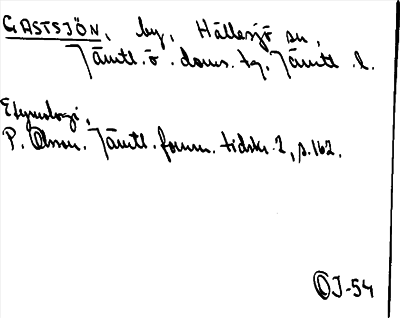 GASTSJÖN, by, Hällesjö sn,
Jämtl. ö. doms. tg, Jämtl. l.
Etymologi.
P. Olsson. Jämtl. fornm. tidskr. 2, s. 162.
OJ-54